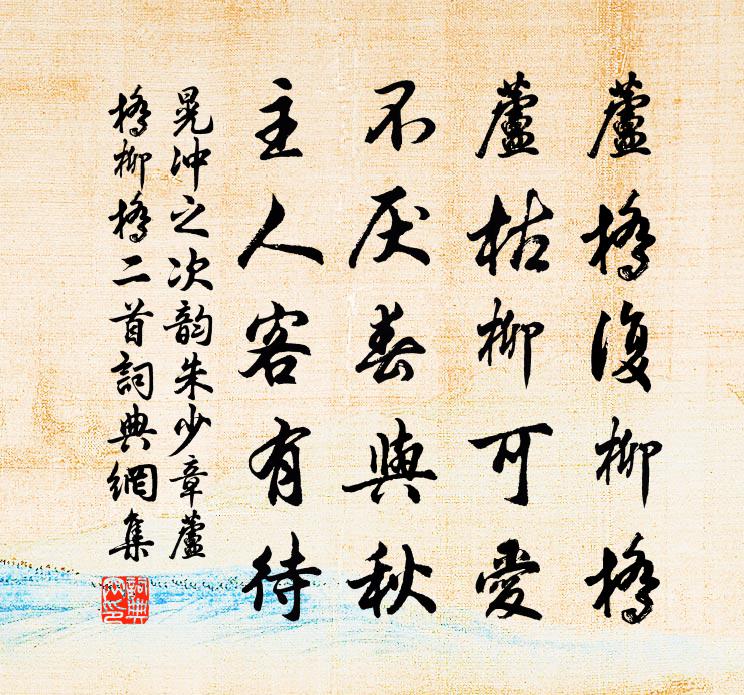 蘆橋復柳橋
蘆枯柳可愛
不厌春與秋
主人客有待
晃沖之次韵朱少章蘆
橋柳橋二首詞典網集